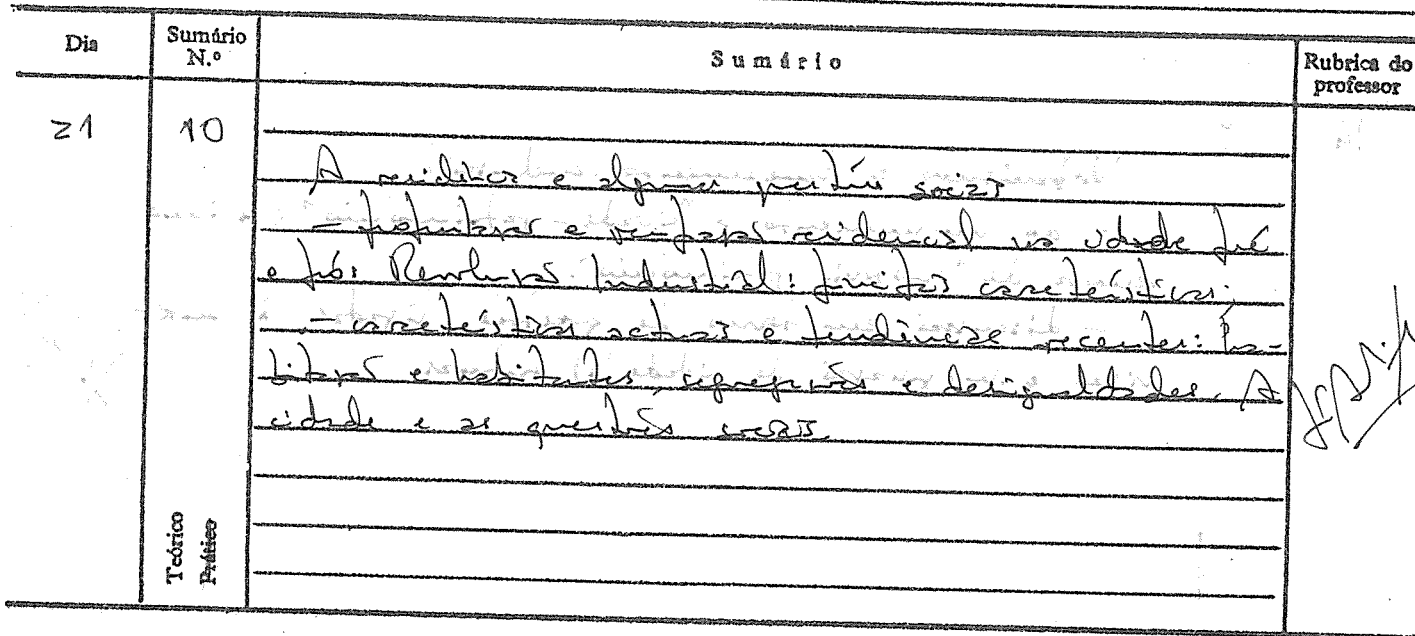 Dia
Sumário N.º
Sumário
Rubrica do professor
21
10
A residência e algumas questões sociais
- população e residencial na cidade pré
e pós Revolução Industrial: principais características;
- características actuais e tendências recentes: ha-
bitação e habitantes, segregação e desigualdades. A
cidade e as questões sociais.
Teórico
Prático